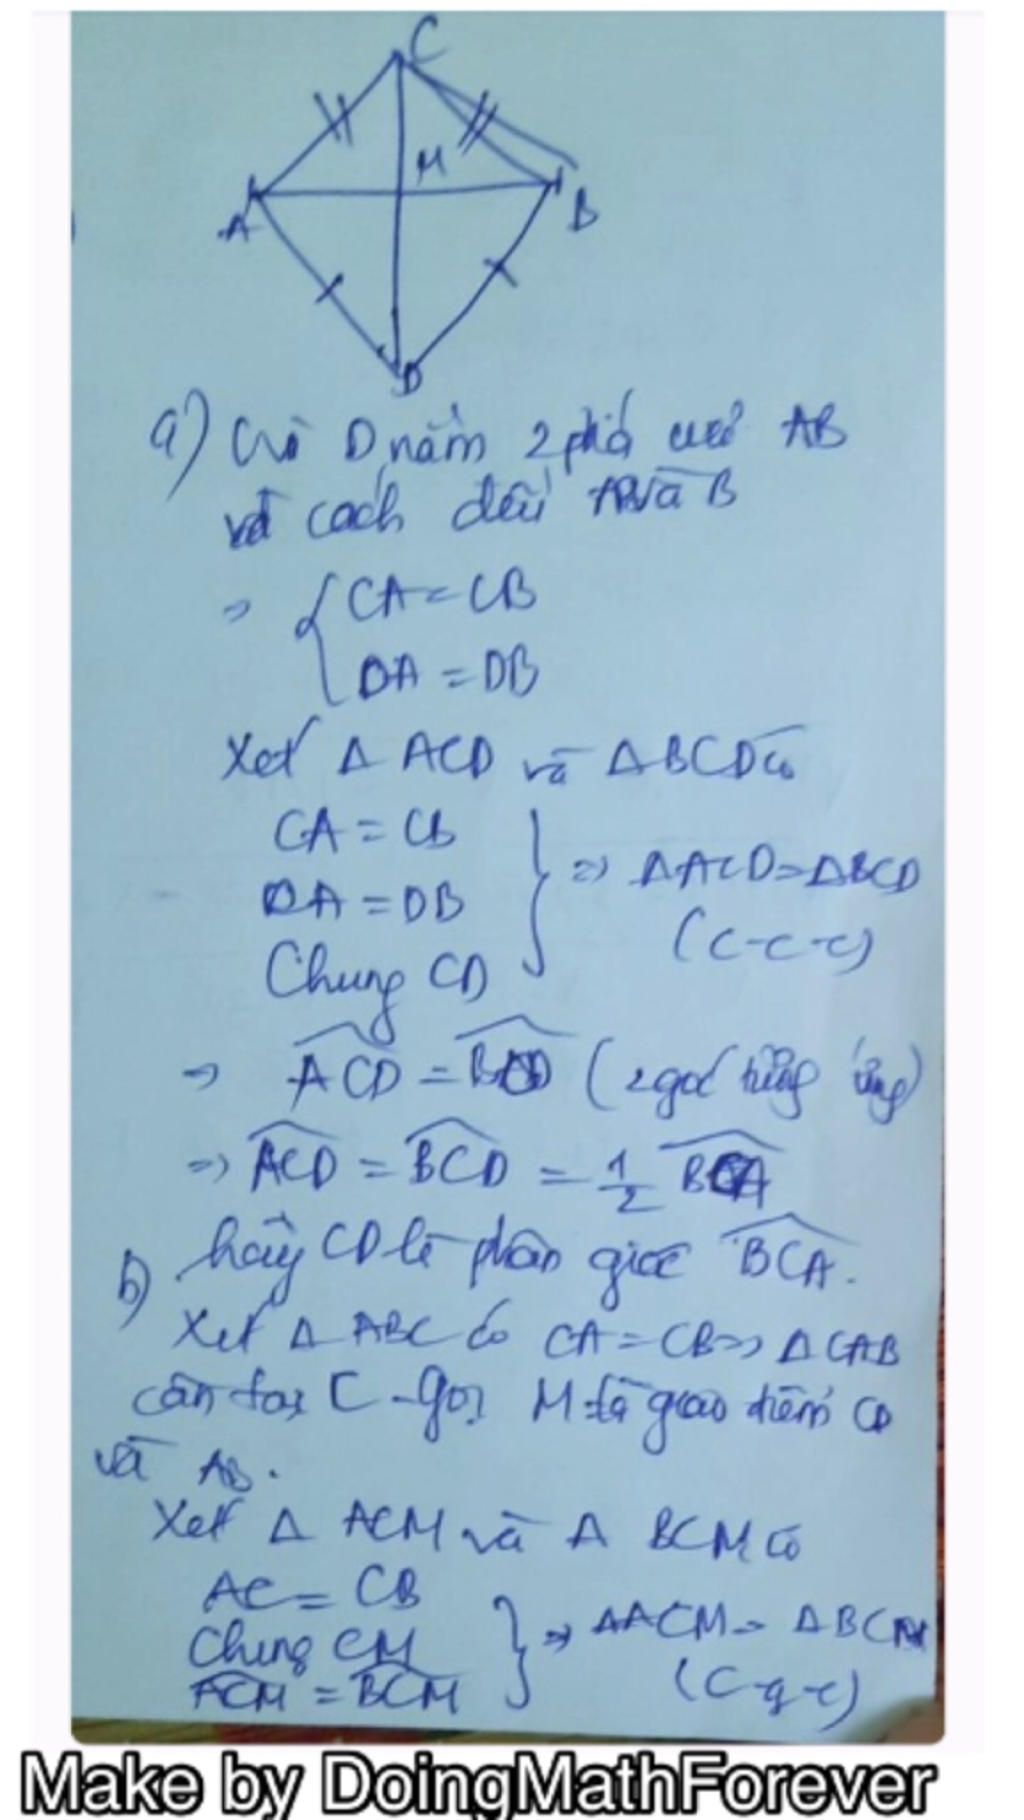 C
M
A
B
D
a) Vì D nằm 2 phía AB
và cách đều A và B
=> { CA = CB
DA = DB
Xét Δ ACD và Δ BCD có
CA = CB
DA = DB } => ΔACD = ΔBCD
Chung CD (c-c-c)
=> ACD = BCD (2 góc tương ứng)
=> ACD = BCD = 1/2 BCA
hay CD là phân giác BCA.
b)
Xét Δ ABC có CA = CB => Δ CAB
cân tại C - gọi M là giao điểm CD
và AB.
Xét Δ ACM và Δ BCM có
AC = CB
Chung CM } => ΔACM = ΔBCM
ACM = BCM (c-g-c)
Make by DoingMathForever